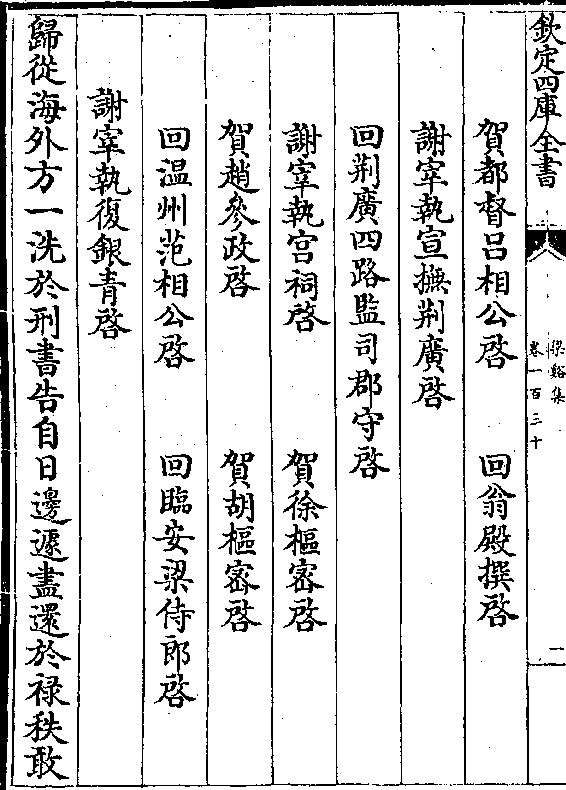 欽定四庫全書
梁谿集
卷一百三十
二
賀都督呂相公啓　回翁殿撰啓
謝宰執宣撫荆廣啓
回荆廣四路監司郡守啓
謝宰執宮祠啓　賀徐樞密啓
賀趙參政啓　賀胡樞密啓
回温州范相公啓　回臨安梁侍郎啓
謝宰執復銀青啓
歸從海外方一洗於刑書告自日邊遽盡還於禄秩敢